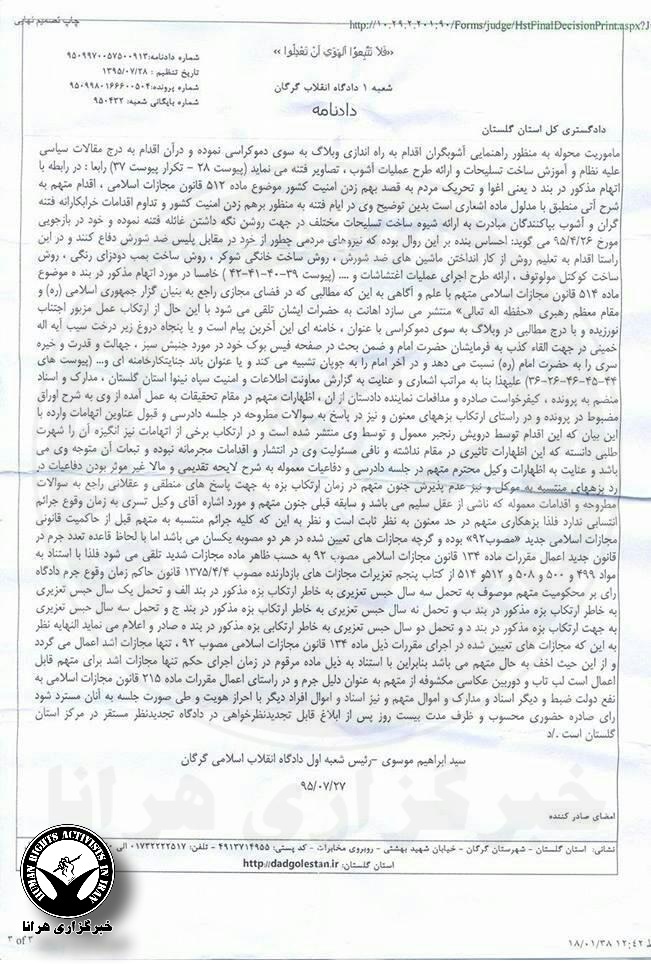 چاپ تصمیم نهایی
http://10.29.2.201:90/Forms/judge/HstFinalDecisionPrint.aspx?J
«فَلا تَتَّبِعوُا اَلهَوَی اَنْ تَعْدِلُوا»
شماره دادنامه:۹۵۰۹۹۷۰۰۵۷۵۰۰۹۱۳
تاریخ تنظیم : ۱۳۹۵/۰۷/۲۸
شماره پرونده:۹۵۰۹۹۸۰۱۶۶۶۰۰۵۰۴
شماره بایگانی شعبه: ۹۵۰۴۳۲
شعبه ۱ دادگاه انقلاب گرگان
دادنامه
دادگستری کل استان گلستان
ماموریت محوله به منظور راهنمایی آشوبگران اقدام به راه اندازی وبلاگ به سوی دموکراسی نموده و درآن اقدام به درج مقالات سیاسی
علیه نظام و آموزش ساخت تسلیحات و ارائه طرح عملیات آشوب ، تصاویر فتنه می نماید (پیوست ۲۸ - تکرار پیوست ۳۷) رابعا : در رابطه با
اتهام مذکور در بند د یعنی اغوا و تحریک مردم به قصد بهم زدن امنیت کشور موضوع ماده ۵۱۲ قانون مجازات اسلامی ، اقدام متهم به
شرح آتی منطبق با مدلول ماده اشعاری است بدین توضیح وی در ایام فتنه به منظور برهم زدن امنیت کشور و تداوم اقدامات خرابکارانه فتنه
گران و آشوب بپاکنندگان مبادرت به ارائه شیوه ساخت تسلیحات مختلف در جهت روشن نگه داشتن غائله فتنه نموده و خود در بازجویی
مورخ ۹۵/۴/۲۶ می گوید: احساس بنده بر این روال بوده که نیروهای مردمی چطور از خود در مقابل پلیس ضد شورش دفاع کنند و در این
راستا اقدام به تعلیم روش از کار انداختن ماشین های ضد شورش ، روش ساخت خانگی شوکر ، روش ساخت بمب دودزای رنگی ، روش
ساخت کوکتل مولوتوف ، ارائه طرح اجرای عملیات اغتشاشات و .... (پیوست ۳۹-۴۰-۴۱-۴۲) خامسا در مورد اتهام مذکور در بند ه موضوع
ماده ۵۱۴ قانون مجازات اسلامی متهم با علم و آگاهی به این که مطالبی که در فضای مجازی راجع به بنیان گزار جمهوری اسلامی (ره) و
مقام معظم رهبری «حفظه اله تعالی» منتشر می سازد اهانت به حضرات ایشان تلقی می شود با این حال از ارتکاب عمل مزبور اجتناب
نورزیده و با درج مطالبی در وبلاگ به سوی دموکراسی با عنوان ، خامنه ای این آخرین پیام است و یا پنجاه دروغ زیر درخت سیب آیه اله
خمینی در جهت القاء کذب به فرمایشان حضرت امام و ضمن بحث در صفحه فیس بوک خود در مورد جنبش سبز ، جهالت و قدرت و خیره
سری را به حضرت امام (ره) نسبت می دهد و در آخر امام را به جوبان تشبیه می کند و یا عنوان باند جنایتکارخامنه ای و... (پیوست های
۴۴-۴۵-۴۶-۲۶-۳۶) علیهذا بنا به مراتب اشعاری و عنایت به گزارش معاونت اطلاعات و امنیت سپاه نینوا استان گلستان ، مدارک و اسناد
منضم به پرونده ، کیفرخواست صادره و مدافعات نماینده دادستان از ان ، اظهارات متهم در مقام تحقیقات به عمل آمده از وی به شرح اوراق
مضبوط در پرونده و در راستای ارتکاب بزههای معنون و نیز در پاسخ به سوالات مطروحه در جلسه دادرسی و قبول عناوین اتهامات وارده با
این بیان که این اقدام توسط درویش رنجبر معمول و توسط وی منتشر شده است و در ارتکاب برخی از اتهامات نیز انگیزه آن را شهرت
طلبی دانسته که این اظهارات تاثیری در مقام نداشته و نافی مسئولیت وی در انتشار و اقدامات مجرمانه نبوده و تبعات آن متوجه وی می
باشد و عنایت به اظهارات وکیل محترم متهم در جلسه دادرسی و دفاعیات معموله به شرح لایحه تقدیمی و مالا غیر موثر بودن دفاعیات در
رد بزههای منتسبه به موکل و نیز عدم پذیرش جنون متهم در زمان ارتکاب بزه به جهت پاسخ های منطقی و عقلانی راجع به سوالات
مطروحه و اقدامات معموله که ناشی از عقل سلیم می باشد و سابقه قبلی جنون متهم و مورد اشاره آقای وکیل تسری به زمان وقوع جرائم
انتسابی ندارد فلذا بزهکاری متهم در حد معنون به نظر ثابت است و نظر به این که کلیه جرائم منتسبه به متهم قبل از حاکمیت قانونی
مجازات اسلامی جدید «مصوب۹۲» بوده و گرچه مجازات های تعیین شده در هر دو مصوبه یکسان می باشد اما با لحاظ قاعده تعدد جرم در
قانون جدید اعمال مقررات ماده ۱۳۴ قانون مجازات اسلامی مصوب ۹۲ به حسب ظاهر ماده مجازات شدید تلقی می شود فلذا با استناد به
مواد ۴۹۹ و ۵۰۰ و ۵۰۸ و ۵۱۲و ۵۱۴ از کتاب پنجم تعزیرات مجازات های بازدارنده مصوب ۱۳۷۵/۴/۴ قانون حاکم زمان وقوع جرم دادگاه
رای بر محکومیت متهم موصوف به تحمل سه سال حبس تعزیری به خاطر ارتکاب بزه مذکور در بند الف و تحمل یک سال حبس تعزیری
به خاطر ارتکاب بزه مذکور در بند ب و تحمل نه سال حبس تعزیری به خاطر ارتکاب بزه مذکور در بند ج و تحمل سه سال حبس تعزیری
به جهت ارتکاب بزه مذکور در بند د و تحمل دو سال حبس تعزیری به خاطر ارتکابی بزه مذکور در بند ه صادر و اعلام می نماید النهایه نظر
به این که مجازات های تعیین شده در اجرای مقررات ذیل ماده ۱۳۴ قانون مجازات اسلامی مصوب ۹۲ ، تنها مجازات اشد اعمال می گردد
و از این حیث اخف به حال متهم می باشد بنابراین با استناد به ذیل ماده مرقوم در زمان اجرای حکم تنها مجازات اشد برای متهم قابل
اعمال است لب تاب و دوربین عکاسی مکشوفه از متهم به عنوان دلیل جرم و در راستای اعمال مقررات ماده ۲۱۵ قانون مجازات اسلامی به
نفع دولت ضبط و دیگر اسناد و مدارک و اموال متهم و نیز اسناد و اموال افراد دیگر با احراز هویت و طی صورت جلسه به آنان مسترد شود
رای صادره حضوری محسوب و ظرف مدت بیست روز پس از ابلاغ قابل تجدیدنظرخواهی در دادگاه تجدیدنظر مستقر در مرکز استان
گلستان است ./د
سید ابراهیم موسوی -رئیس شعبه اول دادگاه انقلاب اسلامی گرگان
۹۵/۰۷/۲۷
امضای صادر کننده
خبرگزاری هرانا
نشانی: استان گلستان - شهرستان گرگان - خیابان شهید بهشتی - روبروی مخابرات - کد پستی: ۴۹۱۳۷۱۴۹۵۵ - تلفن: ۰۱۷۳۲۲۲۲۵۱۷ الی
استان گلستان: http://dadgolestan.ir
HUMAN RIGHTS ACTIVISTS IN IRAN
خبرگزاری هرانا
۳ of ۳
۱۸/۰۱/۳۸ ۱۲:۴۲